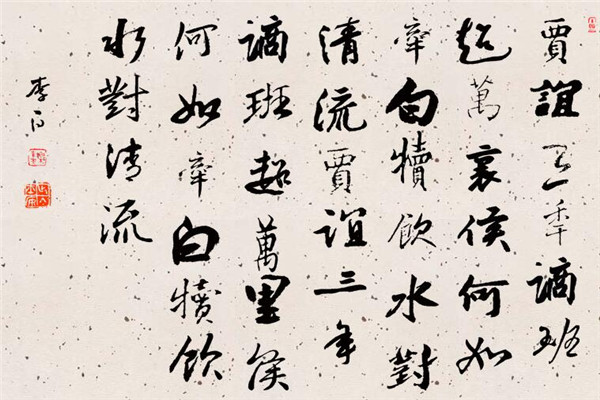 賈誼三年謫班
超萬裏侯何如
牽白犢飲水對
清流賈誼三年
謫班超萬里侯
何如牽白犢飲
水對清流
李白